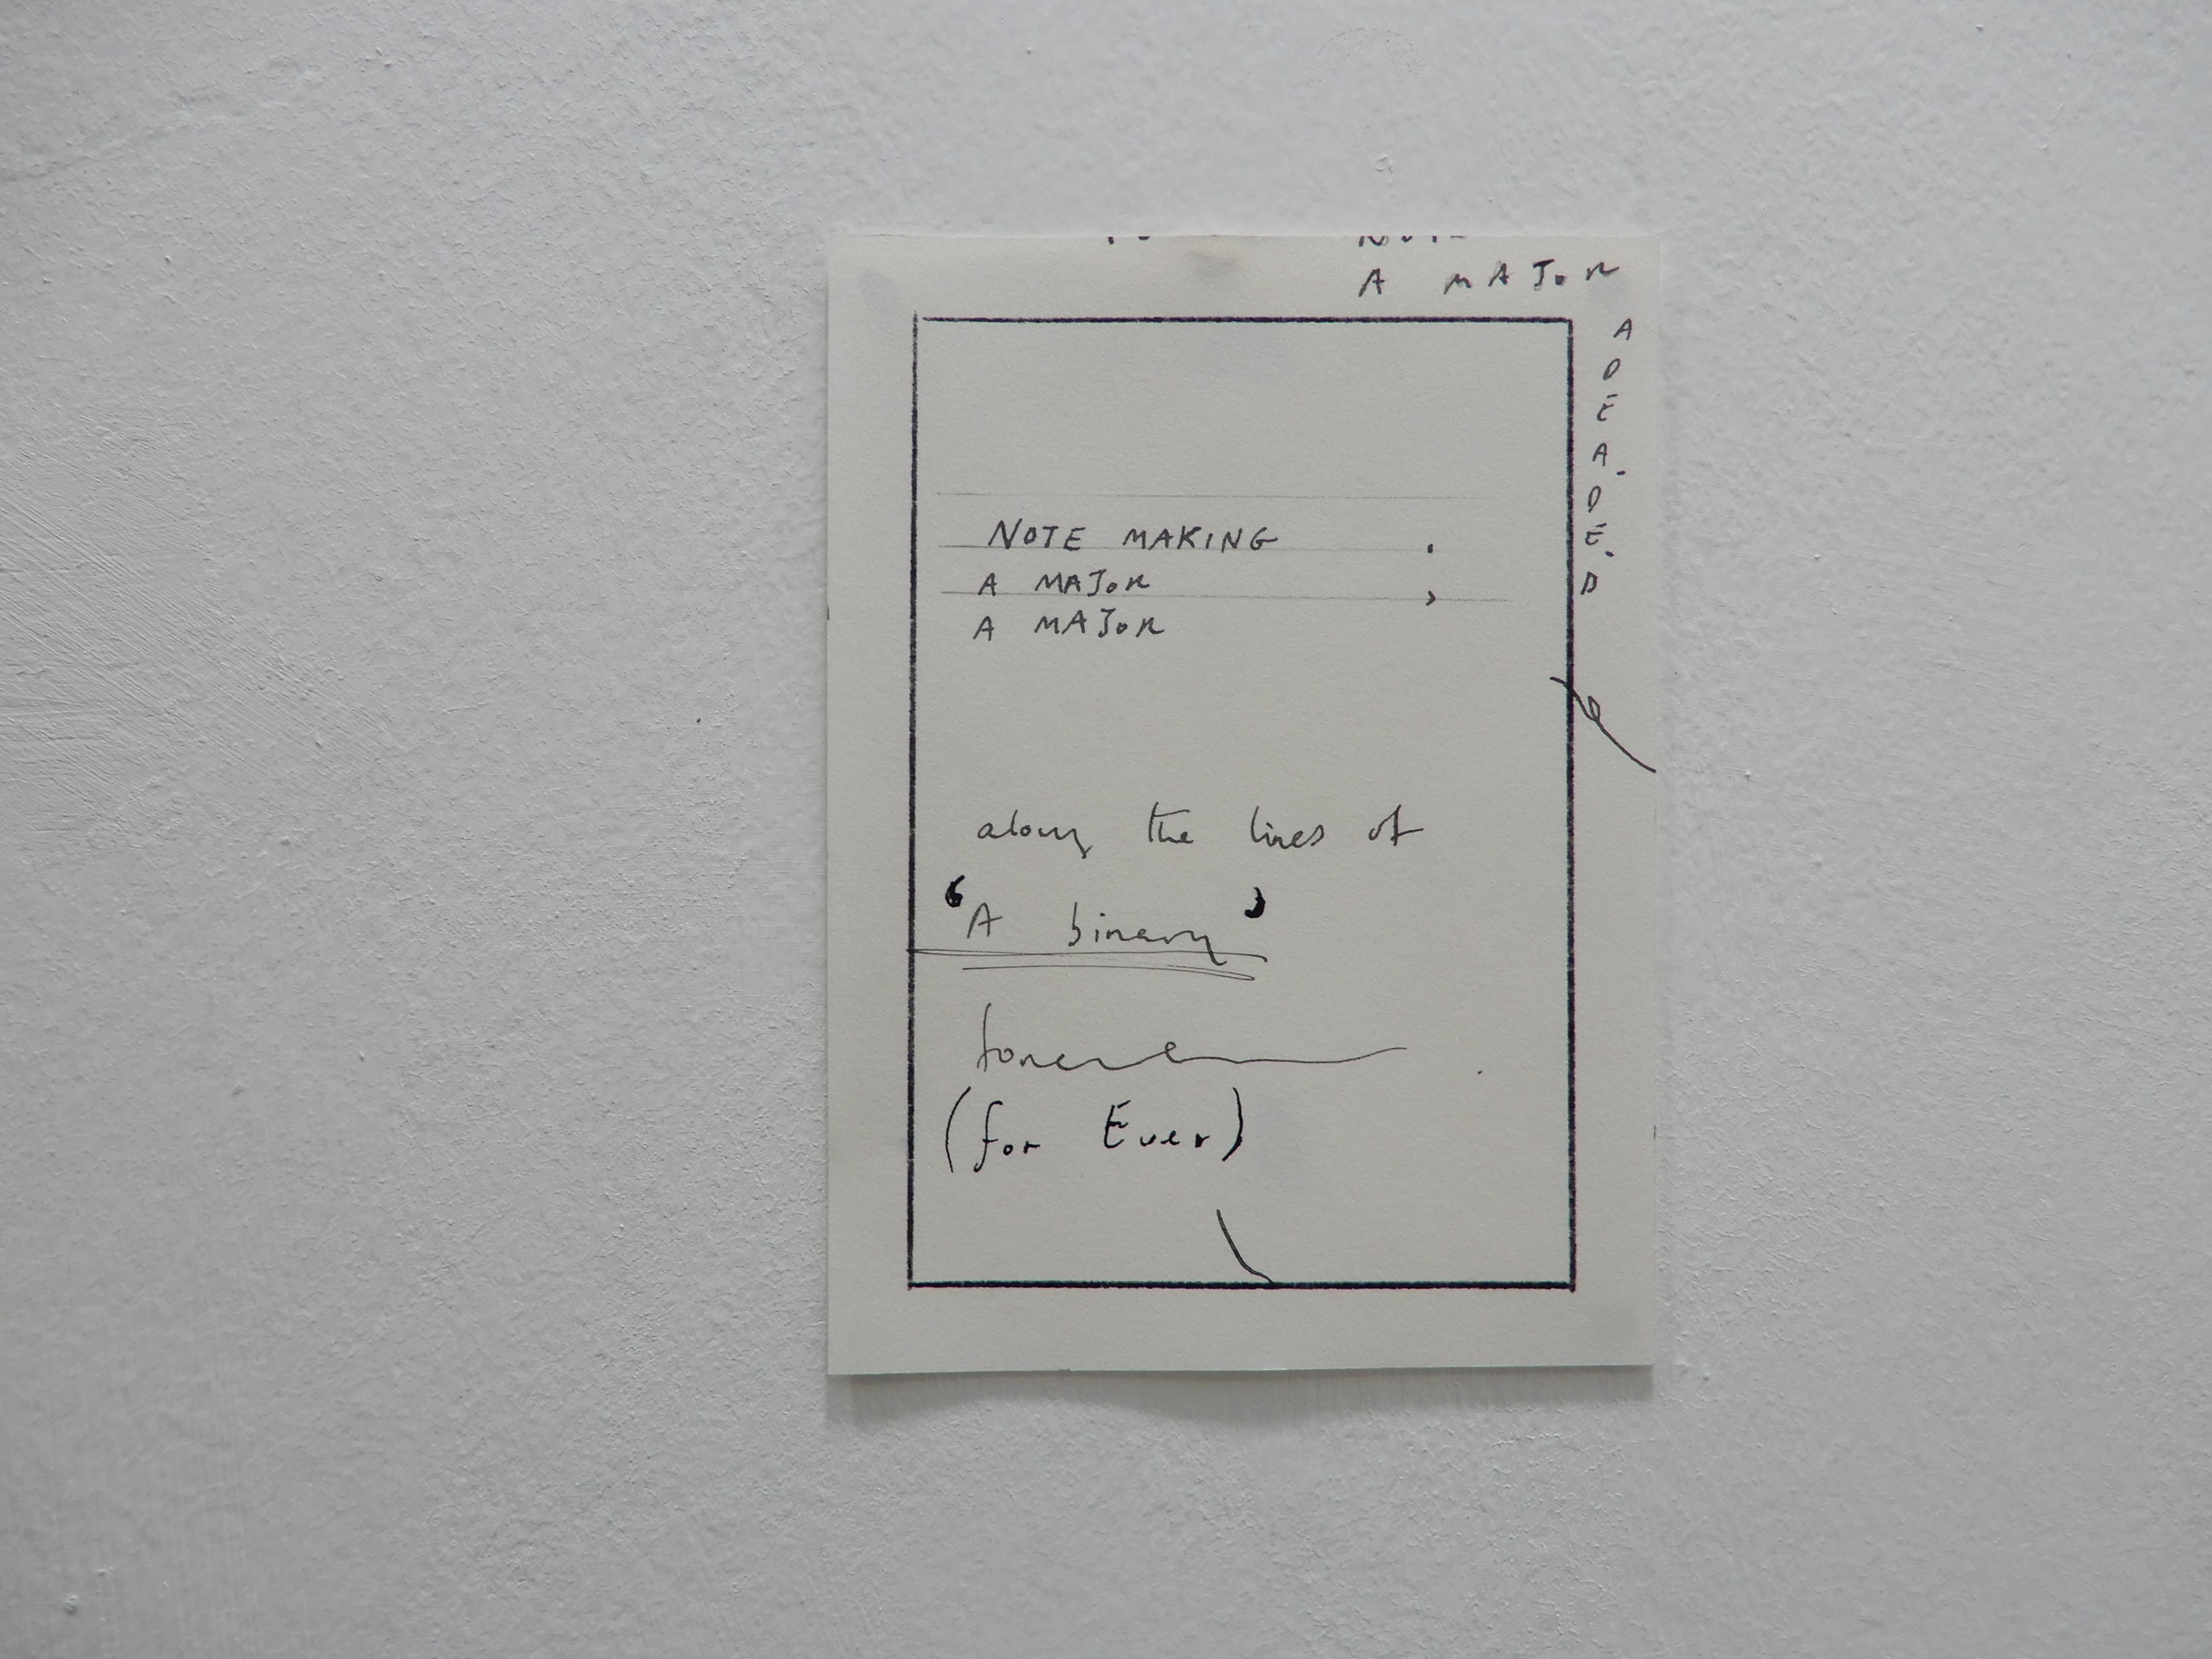 A MAJOR
A
D
E
A.
D
E.
D
NOTE MAKING .
A MAJOR ,
A MAJOR
along the lines of
‘A binary’
forever
(for Ever)